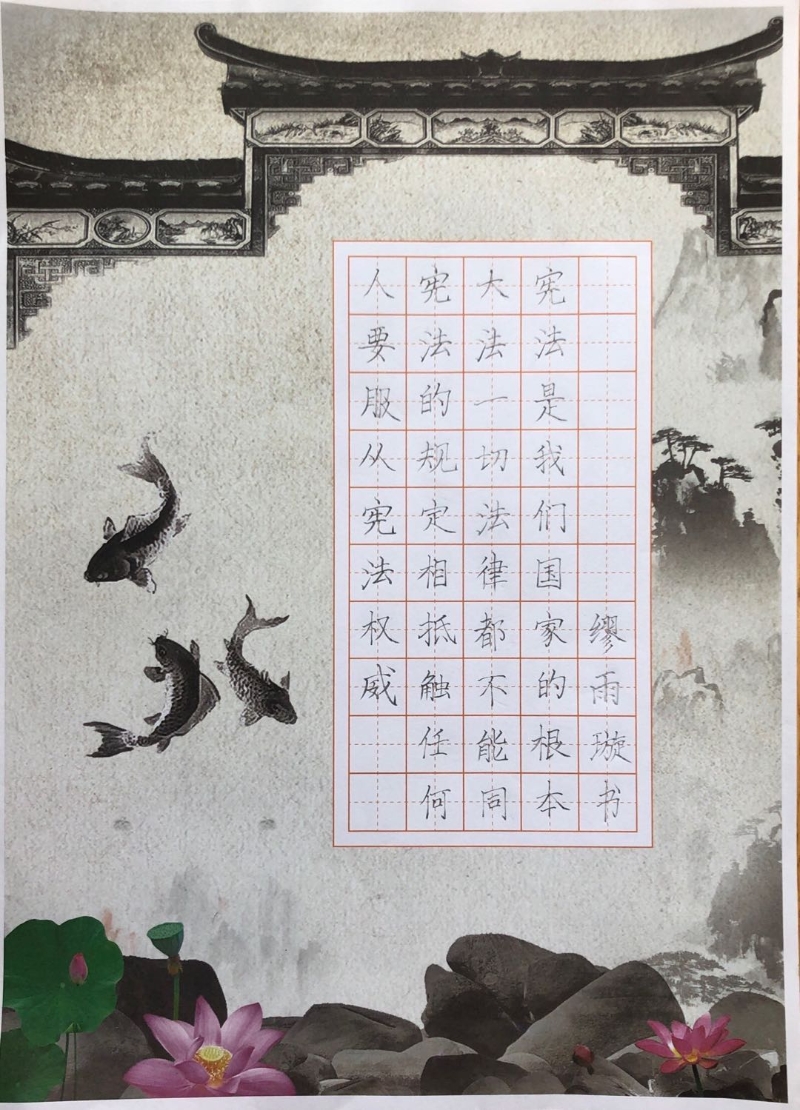 宪法是我们国家的根本
大法一切法律都不能同
宪法的规定相抵触任何
人要服从宪法权威
缪雨璇书